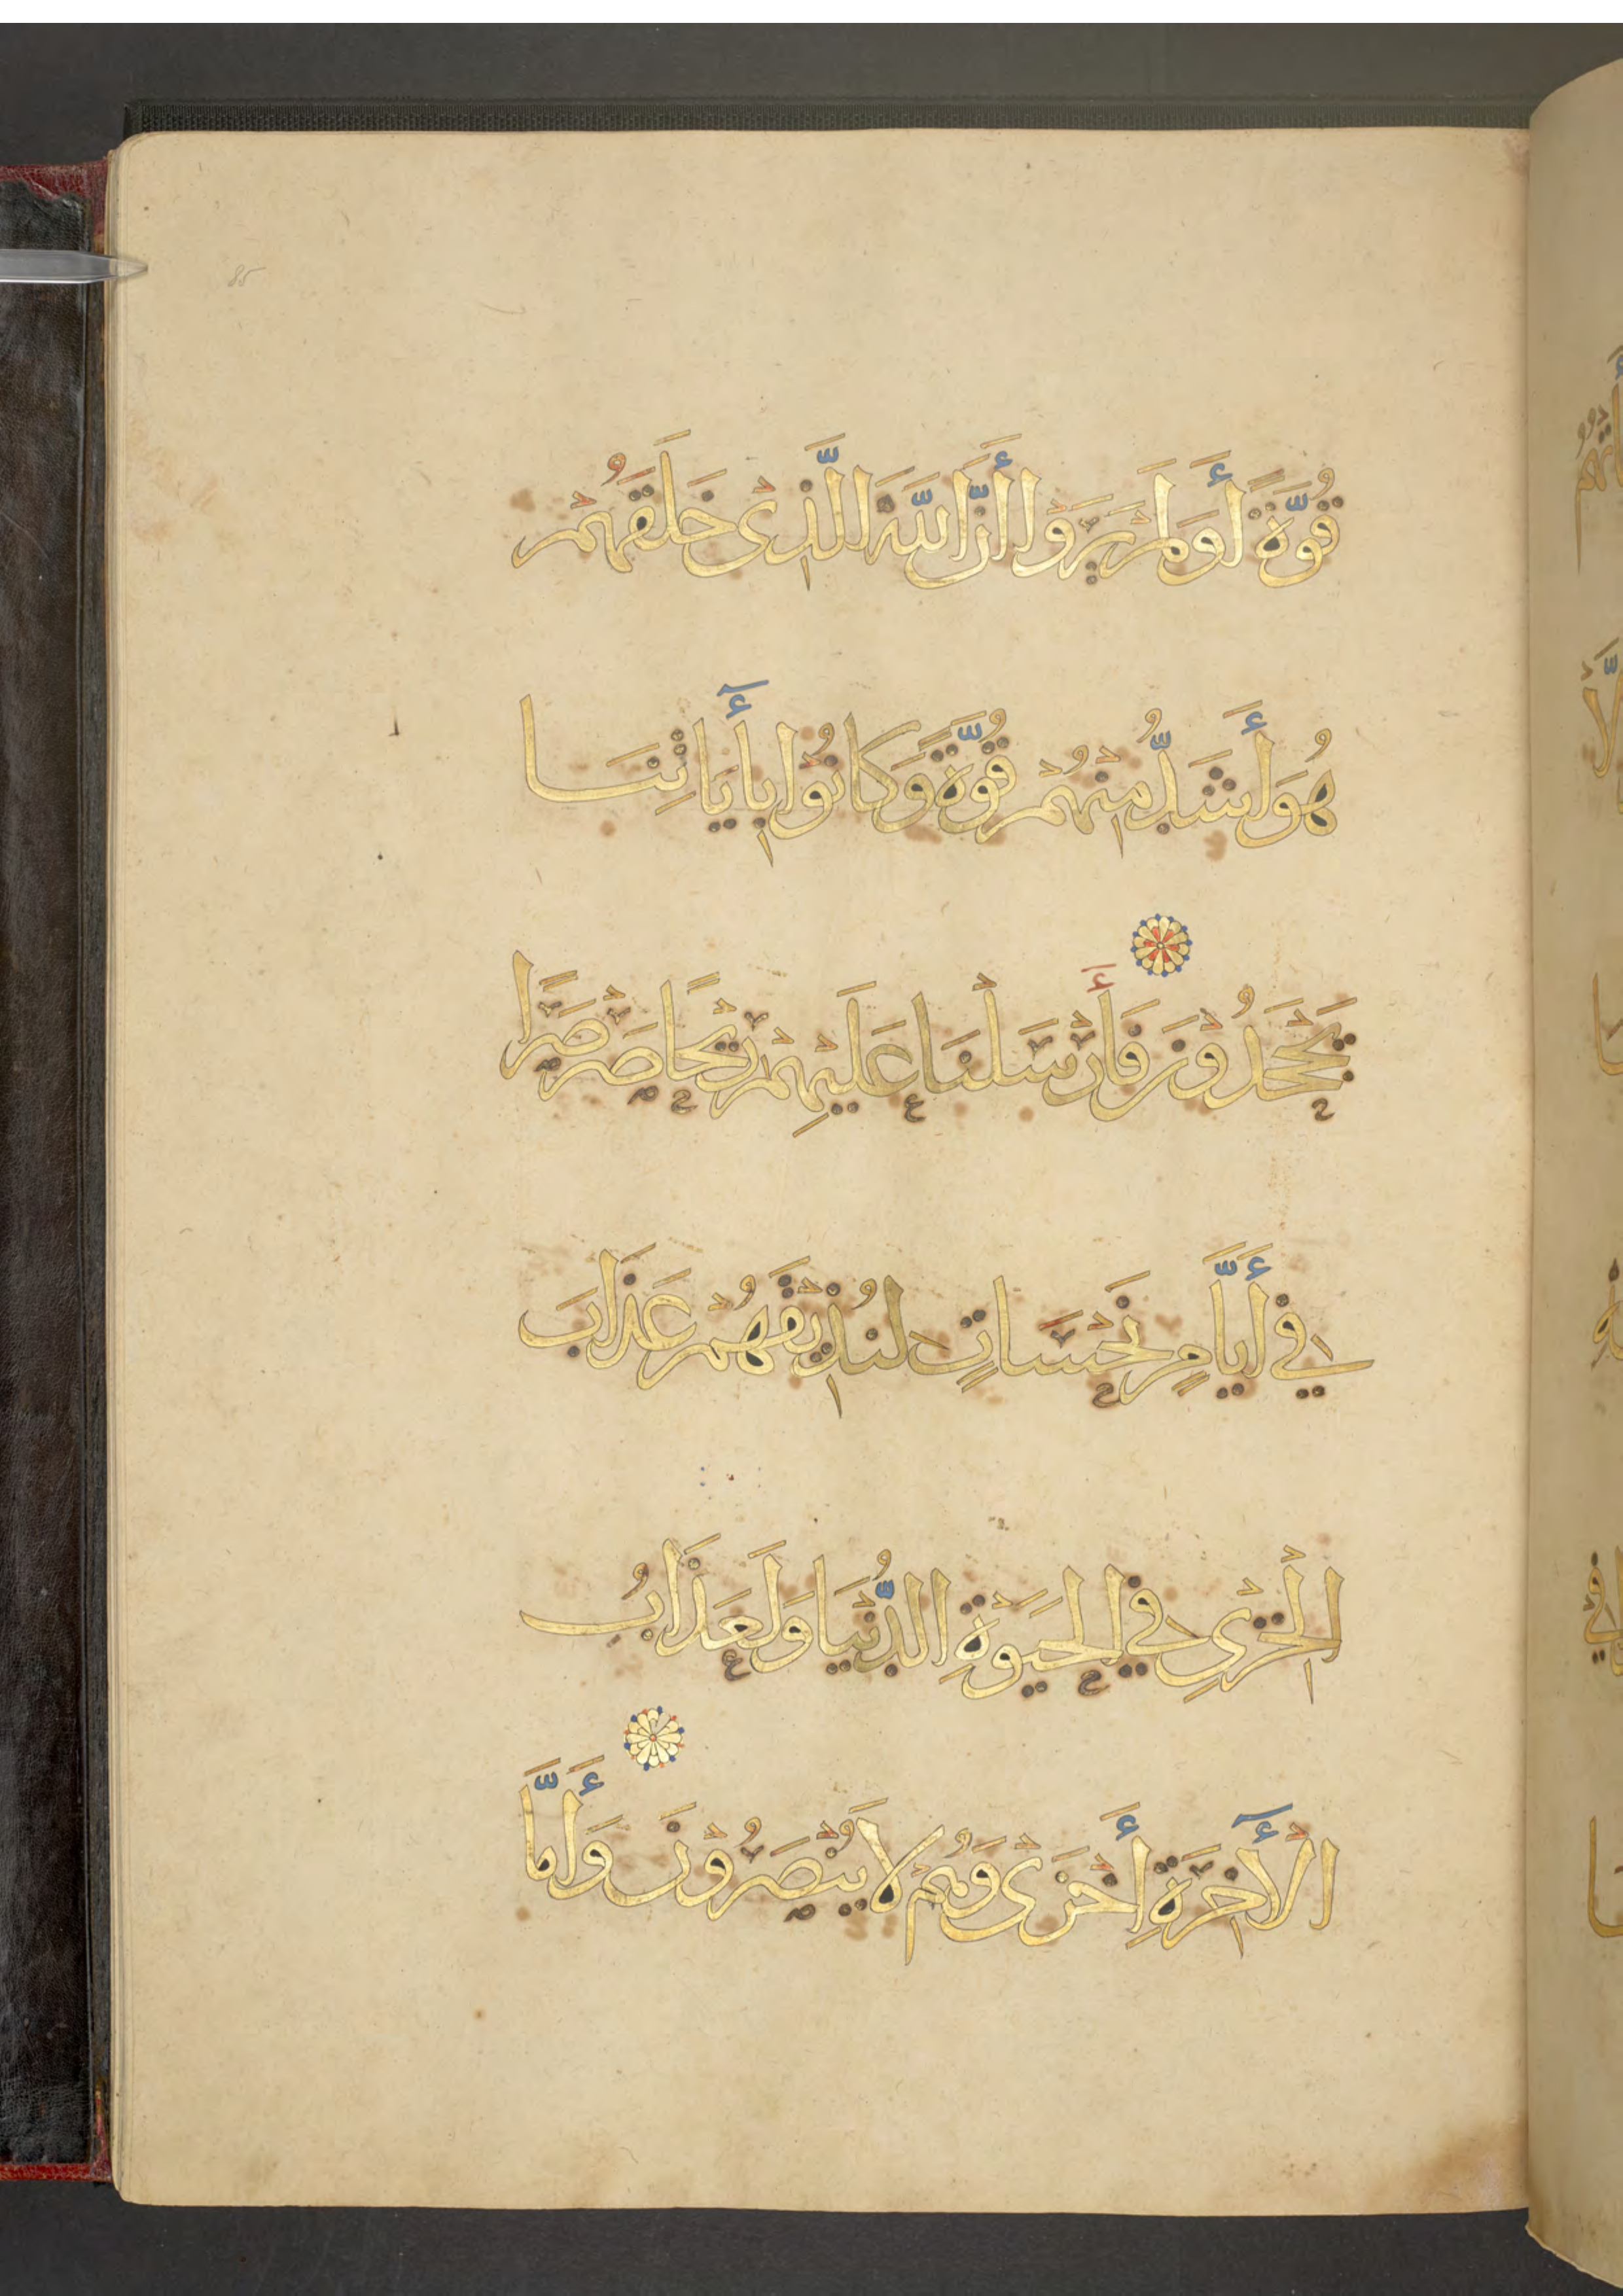 قُوَّةً أَوَلَمْ يَرَوْا أَنَّ اللَّهَ الَّذِى خَلَقَهُمْ
هُوَ أَشَدُّ مِنْهُمْ قُوَّةً وَكَانُوا بِأَيَاتِنَا
يَجْحَدُونَ فَأَرْسَلْنَا عَلَيْهِمْ رِيْحًا صَرْصَرًا
فِي أَيَّامٍ نَحْسَاتٍ لِنُذِيْقَهُمْ عَذَابَ
الْخِزْىِ فِي الْحَيَوةِ الدُّنْيَا وَلَعَذَابُ
الْأَخِرَةِ أَخْزَى وَهُمْ لَا يُنْصَرُونَ وَأَمَّا